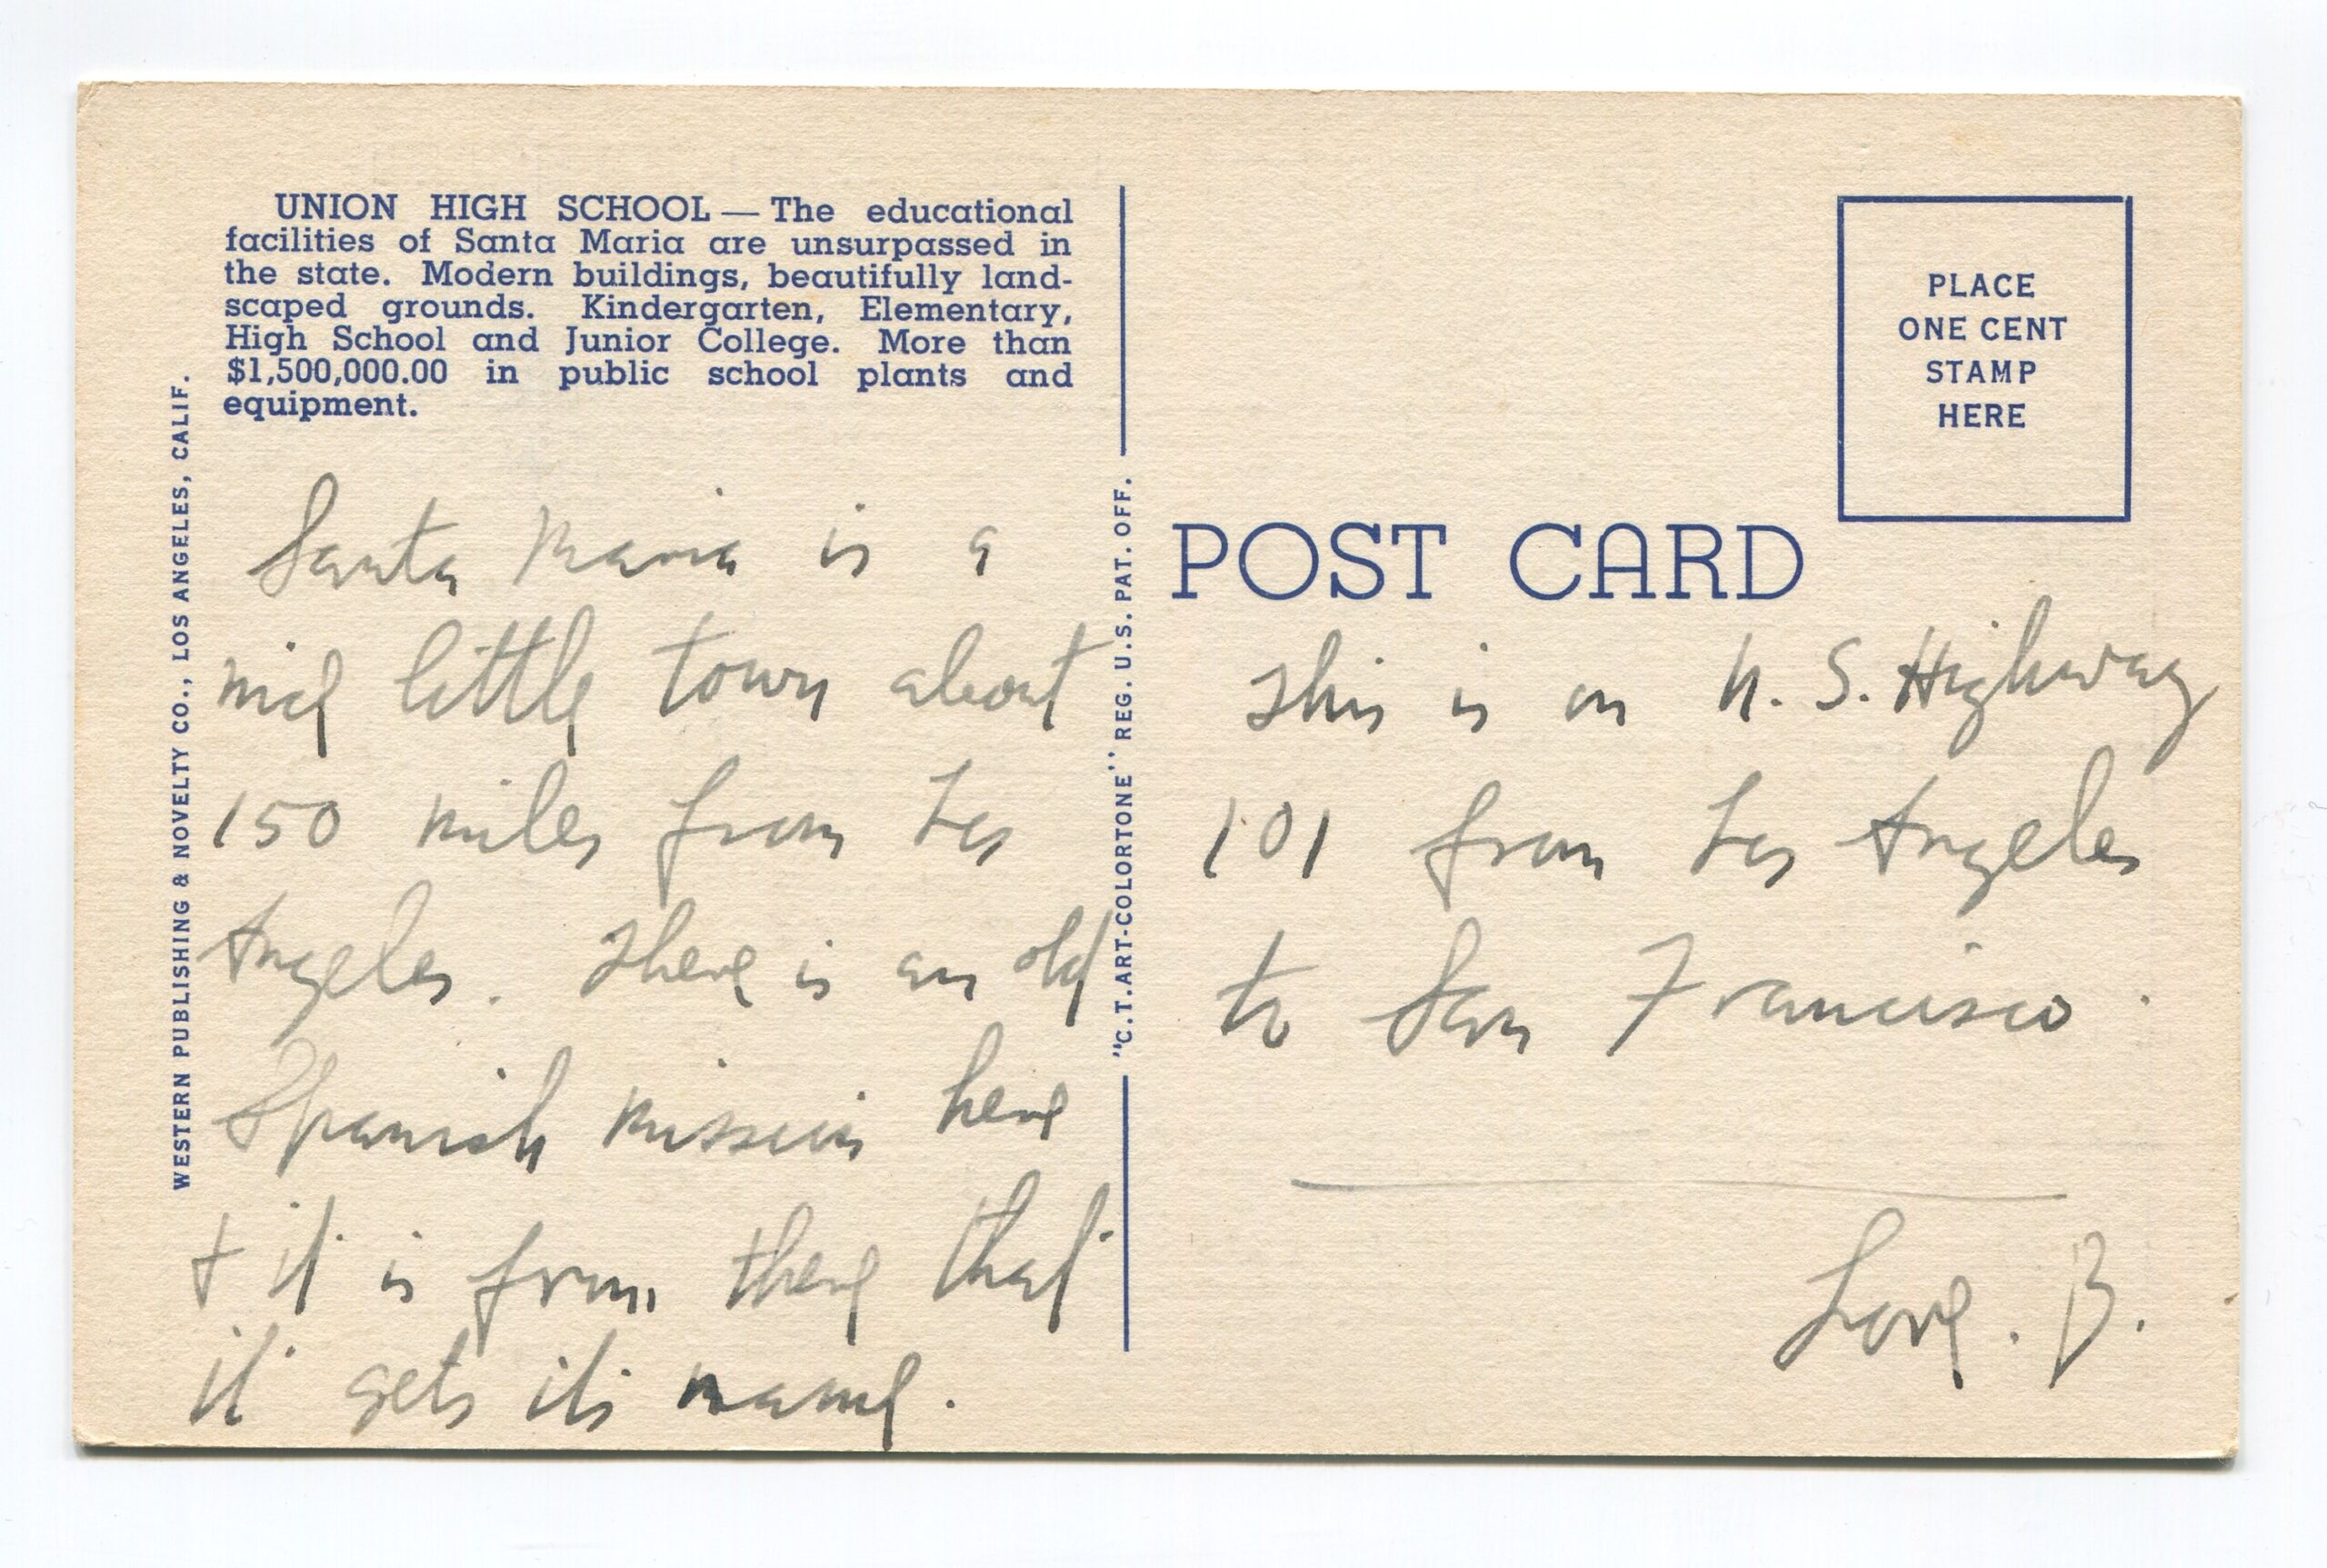 UNION HIGH SCHOOL — The educational
facilities of Santa Maria are unsurpassed in
the state. Modern buildings, beautifully land-
scaped grounds. Kindergarten, Elementary,
High School and Junior College. More than
$1,500,000.00 in public school plants and
equipment.
WESTERN PUBLISHING & NOVELTY CO., LOS ANGELES, CALIF.
Santa Maria is a
nice little town about
150 miles from Los
Angeles. There is an old
Spanish mission here
+ it is from there that
it gets its name.
"C.T. ART-COLORTONE" REG. U.S. PAT. OFF.
PLACE
ONE CENT
STAMP
HERE
POST CARD
This is on U.S. Highway
101 from Los Angeles
to San Francisco.
Love. B.